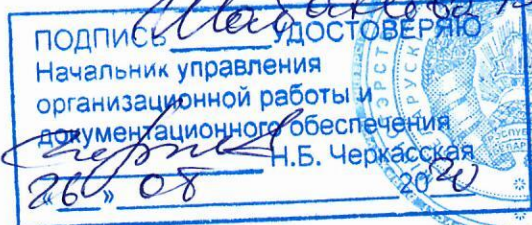 ПОДПИСЬ УДОСТОВЕРЯЮ
Начальник управления
организационной работы и
документационного обеспечения
Н.Б. Черкасская
«26» 08 2020